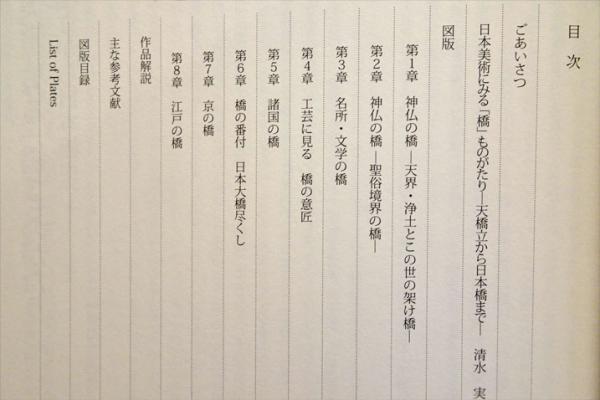 目次
ごあいさつ
日本美術にみる「橋」ものがたり―天橋立から日本橋まで― 清水 実
図版
第1章 神仏の橋 ―天界・浄土とこの世の架け橋―
第2章 神仏の橋 ―聖俗境界の橋―
第3章 名所・文学の橋
第4章 工芸に見る 橋の意匠
第5章 諸国の橋
第6章 橋の番付 日本大橋尽くし
第7章 京の橋
第8章 江戸の橋
作品解説
主な参考文献
図版目録
List of Plates